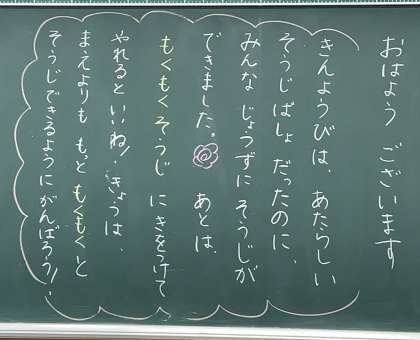 おはよう ございます
きんようびは、あたらしい
そうじばしょ だったのに、
みんな じょうずに そうじが
できました。 あとは、
もくもく そうじ に きをつけて
やれると いいね! きょうは、
まえよりも もっと もくもくと
そうじできるように がんばろう!